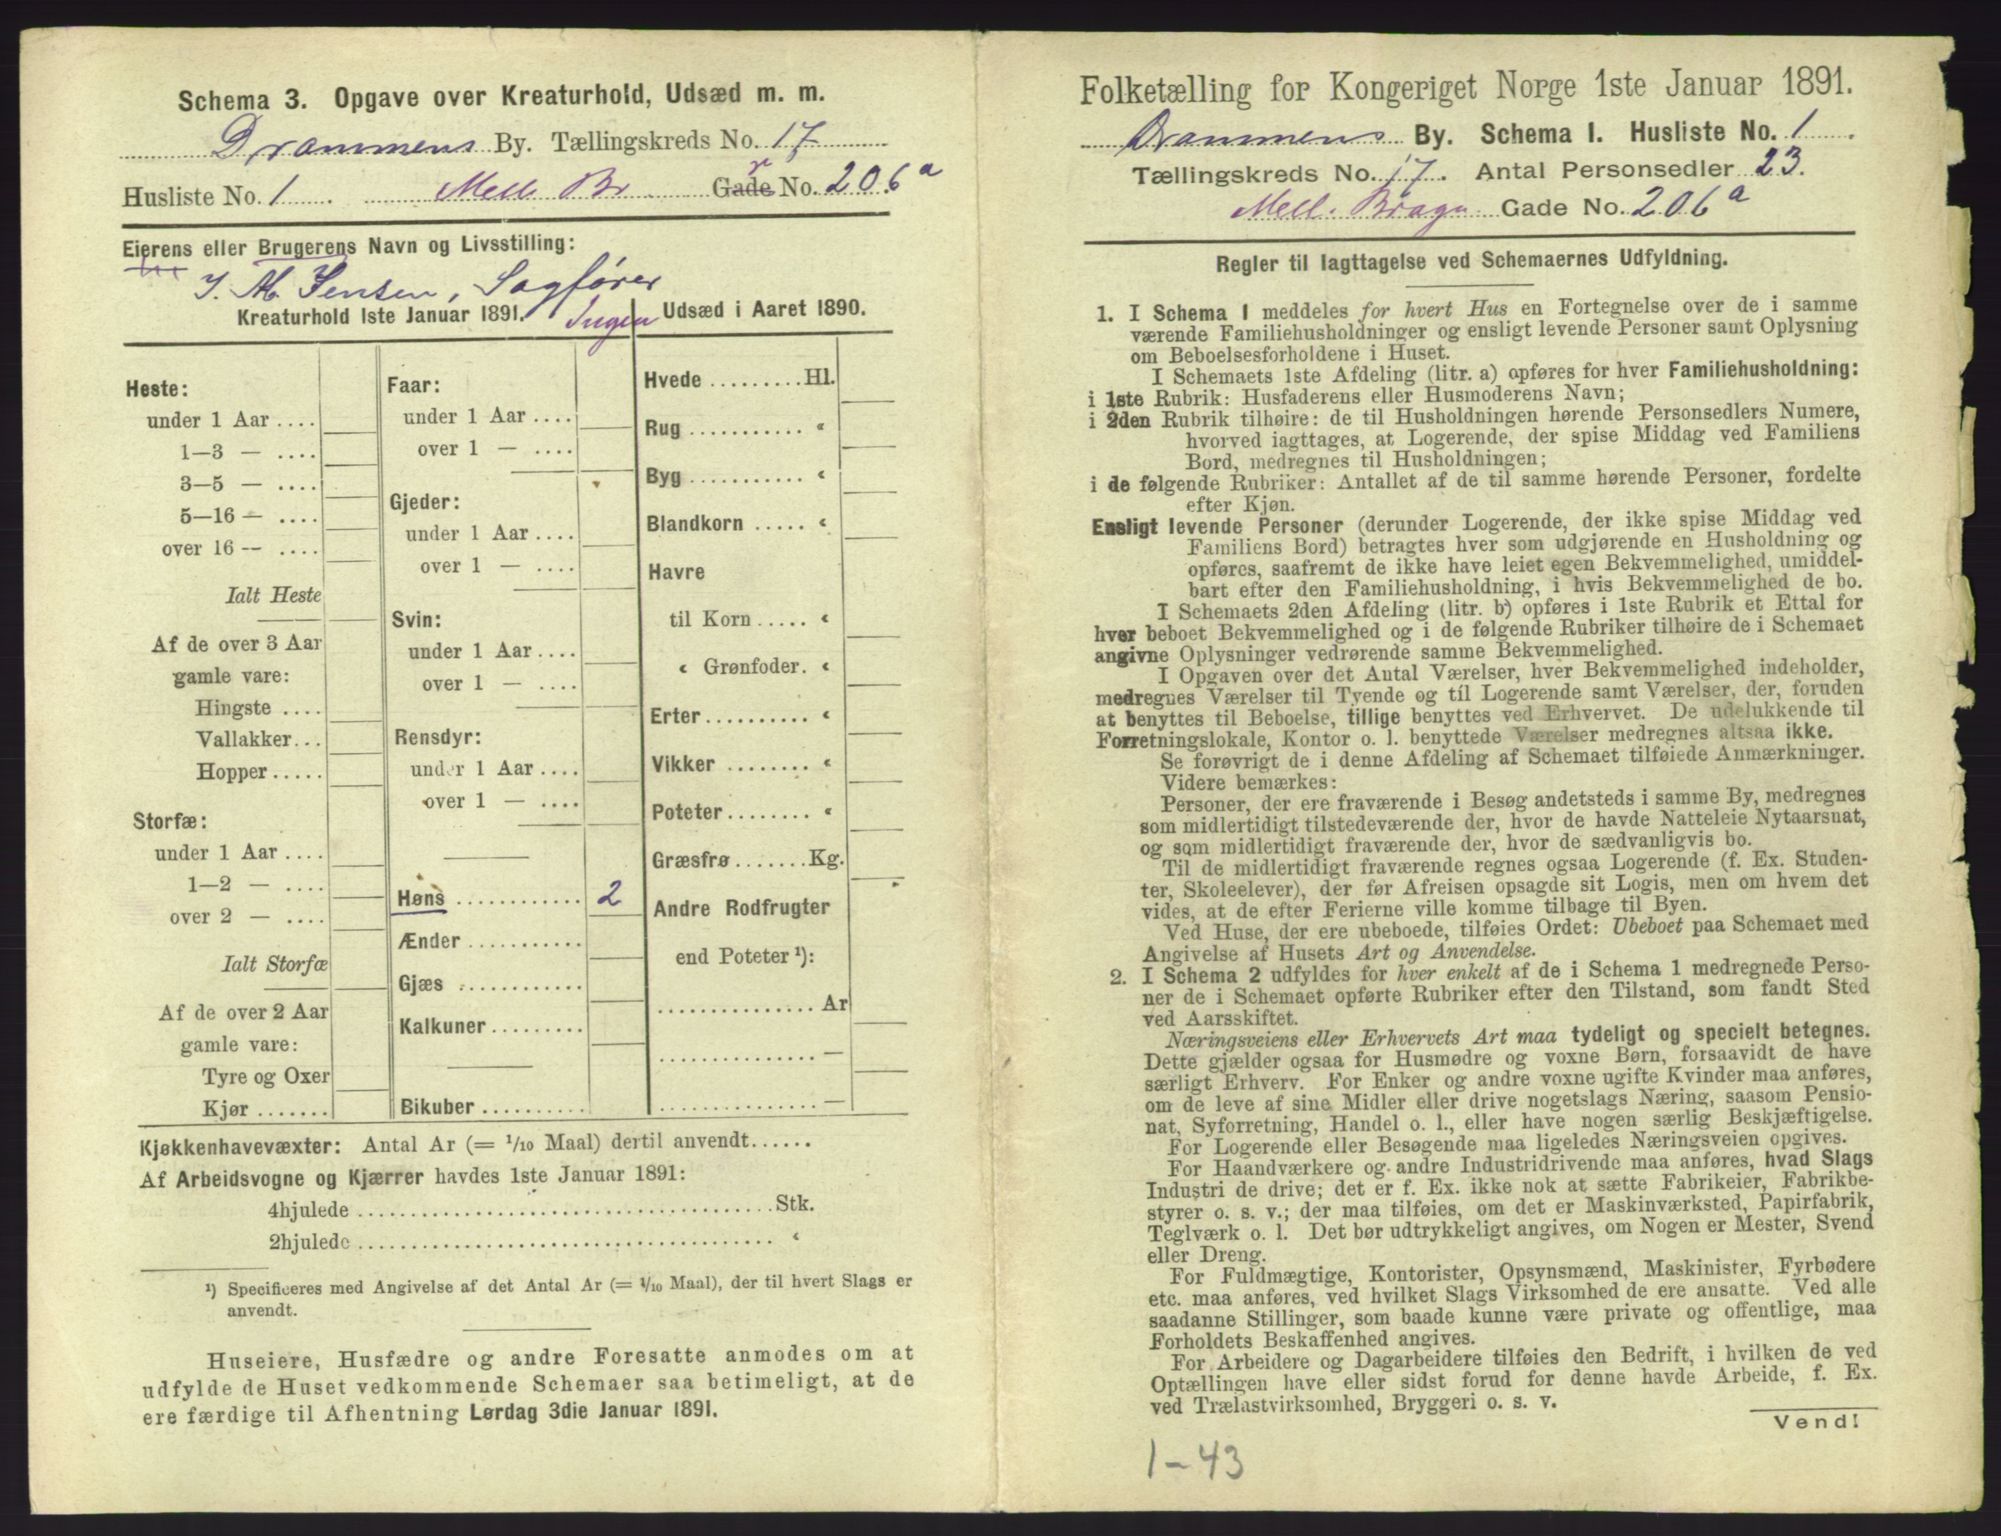 Schema 3. Opgave over Kreaturhold, Udsæd m. m.
Drammens By. Tællingskreds No. 17
Husliste No. 1 . Mell. Br. Gade No. 206a
Eierens eller Brugerens Navn og Livsstilling:
J. M. Jensen, Sagfører
Kreaturhold 1ste Januar 1891. Ingen
Udsæd i Aaret 1890.
Heste:
under 1 Aar ....
1—3 — ....
3—5 — ....
5—16 — ....
over 16 -- ....
Ialt Heste
Af de over 3 Aar
gamle vare:
Hingste ....
Vallakker...
Hopper.....
Storfæ:
under 1 Aar ....
1—2 — ....
over 2 — ....
Ialt Storfæ
Af de over 2 Aar
gamle vare:
Tyre og Oxer
Kjør .......
Faar:
under 1 Aar ....
over 1 — ....
Gjeder:
under 1 Aar ....
over 1 — ....
Svin:
under 1 Aar ....
over 1 — ....
Rensdyr:
under 1 Aar ....
over 1 — ....
Høns ............ 2
Ænder ...........
Gjæs ............
Kalkuner.........
Bikuber ..........
Hvede .........Hl.
Rug ........... «
Byg ........... «
Blandkorn ..... «
Havre
til Korn ..... «
« Grønfoder. «
Erter.......... «
Vikker ........ «
Poteter ........ «
Græsfrø .......Kg.
Andre Rodfrugter
end Poteter ¹):
............... Ar
............... —
............... —
Kjøkkenhavevæxter: Antal Ar (= 1/10 Maal) dertil anvendt......
Af Arbeidsvogne og Kjærrer havdes 1ste Januar 1891:
4hjulede ........................................Stk.
2hjulede ........................................ «
¹) Specificeres med Angivelse af det Antal Ar (= 1/10 Maal), der til hvert Slags er
anvendt.
Huseiere, Husfædre og andre Foresatte anmodes om at
udfylde de Huset vedkommende Schemaer saa betimeligt, at de
ere færdige til Afhentning Lørdag 3die Januar 1891.
Folketælling for Kongeriget Norge 1ste Januar 1891.
Drammens By. Schema 1. Husliste No. 1 .
Tællingskreds No. 17. Antal Personsedler 23.
Mell. Bragn Gade No. 206a
Regler til Iagttagelse ved Schemaernes Udfyldning.
1. I Schema 1 meddeles for hvert Hus en Fortegnelse over de i samme
værende Familiehusholdninger og ensligt levende Personer samt Oplysning
om Beboelsesforholdene i Huset.
I Schemaets 1ste Afdeling (litr. a) opføres for hver Familiehusholdning:
i 1ste Rubrik: Husfaderens eller Husmoderens Navn;
i 2den Rubrik tilhøire: de til Husholdningen hørende Personsedlers Numere,
hvorved iagttages, at Logerende, der spise Middag ved Familiens
Bord, medregnes til Husholdningen;
i de følgende Rubriker: Antallet af de til samme hørende Personer, fordelte
efter Kjøn.
Ensligt levende Personer (derunder Logerende, der ikke spise Middag ved
Familiens Bord) betragtes hver som udgjørende en Husholdning og
opføres, saafremt de ikke have leiet egen Bekvemmelighed, umiddel-
bart efter den Familiehusholdning, i hvis Bekvemmelighed de bo.
I Schemaets 2den Afdeling (litr. b) opføres i 1ste Rubrik et Ettal for
hver beboet Bekvemmelighed og i de følgende Rubriker tilhøire de i Schemaet
angivne Oplysninger vedrørende samme Bekvemmelighed.
I Opgaven over det Antal Værelser, hver Bekvemmelighed indeholder,
medregnes Værelser til Tyende og til Logerende samt Værelser, der, foruden
at benyttes til Beboelse, tillige benyttes ved Erhvervet. De udelukkende til
Forretningslokale, Kontor o. l. benyttede Værelser medregnes altsaa ikke.
Se forøvrigt de i denne Afdeling af Schemaet tilføiede Anmærkninger.
Videre bemærkes:
Personer, der ere fraværende i Besøg andetsteds i samme By, medregnes
som midlertidigt tilstedeværende der, hvor de havde Natteleie Nytaarsnat,
og som midlertidigt fraværende der, hvor de sædvanligvis bo.
Til de midlertidigt fraværende regnes ogsaa Logerende (f. Ex. Studen-
ter, Skoleelever), der før Afreisen opsagde sit Logis, men om hvem det
vides, at de efter Ferierne ville komme tilbage til Byen.
Ved Huse, der ere ubeboede, tilføies Ordet: Ubeboet paa Schemaet med
Angivelse af Husets Art og Anvendelse.
2. I Schema 2 udfyldes for hver enkelt af de i Schema 1 medregnede Perso-
ner de i Schemaet opførte Rubriker efter den Tilstand, som fandt Sted
ved Aarsskiftet.
Næringsveiens eller Erhvervets Art maa tydeligt og specielt betegnes.
Dette gjælder ogsaa for Husmødre og voxne Børn, forsaavidt de have
særligt Erhverv. For Enker og andre voxne ugifte Kvinder maa anføres,
om de leve af sine Midler eller drive nogetslags Næring, saasom Pensio-
nat, Syforretning, Handel o. l., eller have nogen særlig Beskjæftigelse.
For Logerende eller Besøgende maa ligeledes Næringsveien opgives.
For Haandværkere og andre Industridrivende maa anføres, hvad Slags
Industri de drive; det er f. Ex. ikke nok at sætte Fabrikeier, Fabrikbe-
styrer o. s. v.; der maa tilføies, om det er Maskinværksted, Papirfabrik,
Teglværk o. l. Det bør udtrykkeligt angives, om Nogen er Mester, Svend
eller Dreng.
For Fuldmægtige, Kontorister, Opsynsmænd, Maskinister, Fyrbødere
etc. maa anføres, ved hvilket Slags Virksomhed de ere ansatte. Ved alle
saadanne Stillinger, som baade kunne være private og offentlige, maa
Forholdets Beskaffenhed angives.
For Arbeidere og Dagarbeidere tilføies den Bedrift, i hvilken de ved
Optællingen have eller sidst forud for denne havde Arbeide, f. Ex.
ved Trælastvirksomhed, Bryggeri o. s. v.
Vend!
1-43